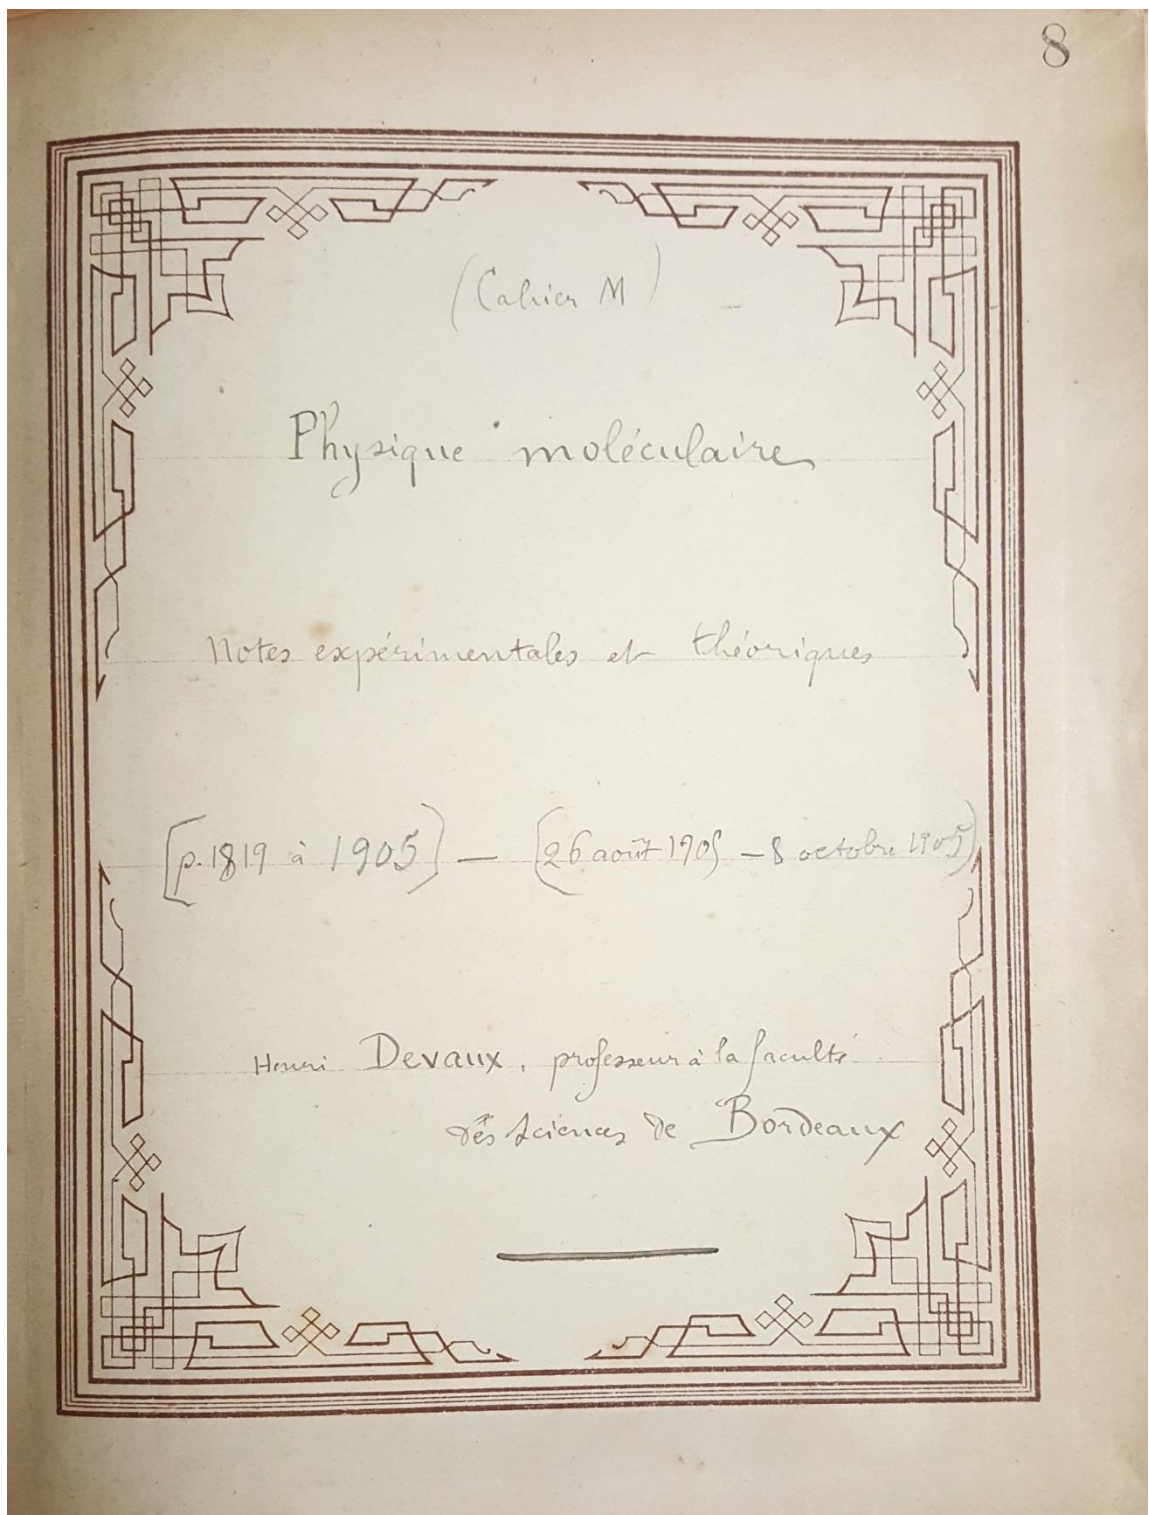 8
(Cahier M)
Physique moléculaire
Notes expérimentales et théoriques
[p. 1819 à 1905] — [26 août 1905 — 8 octobre 1905]
Henri Devaux, professeur à la faculté
des Sciences de Bordeaux